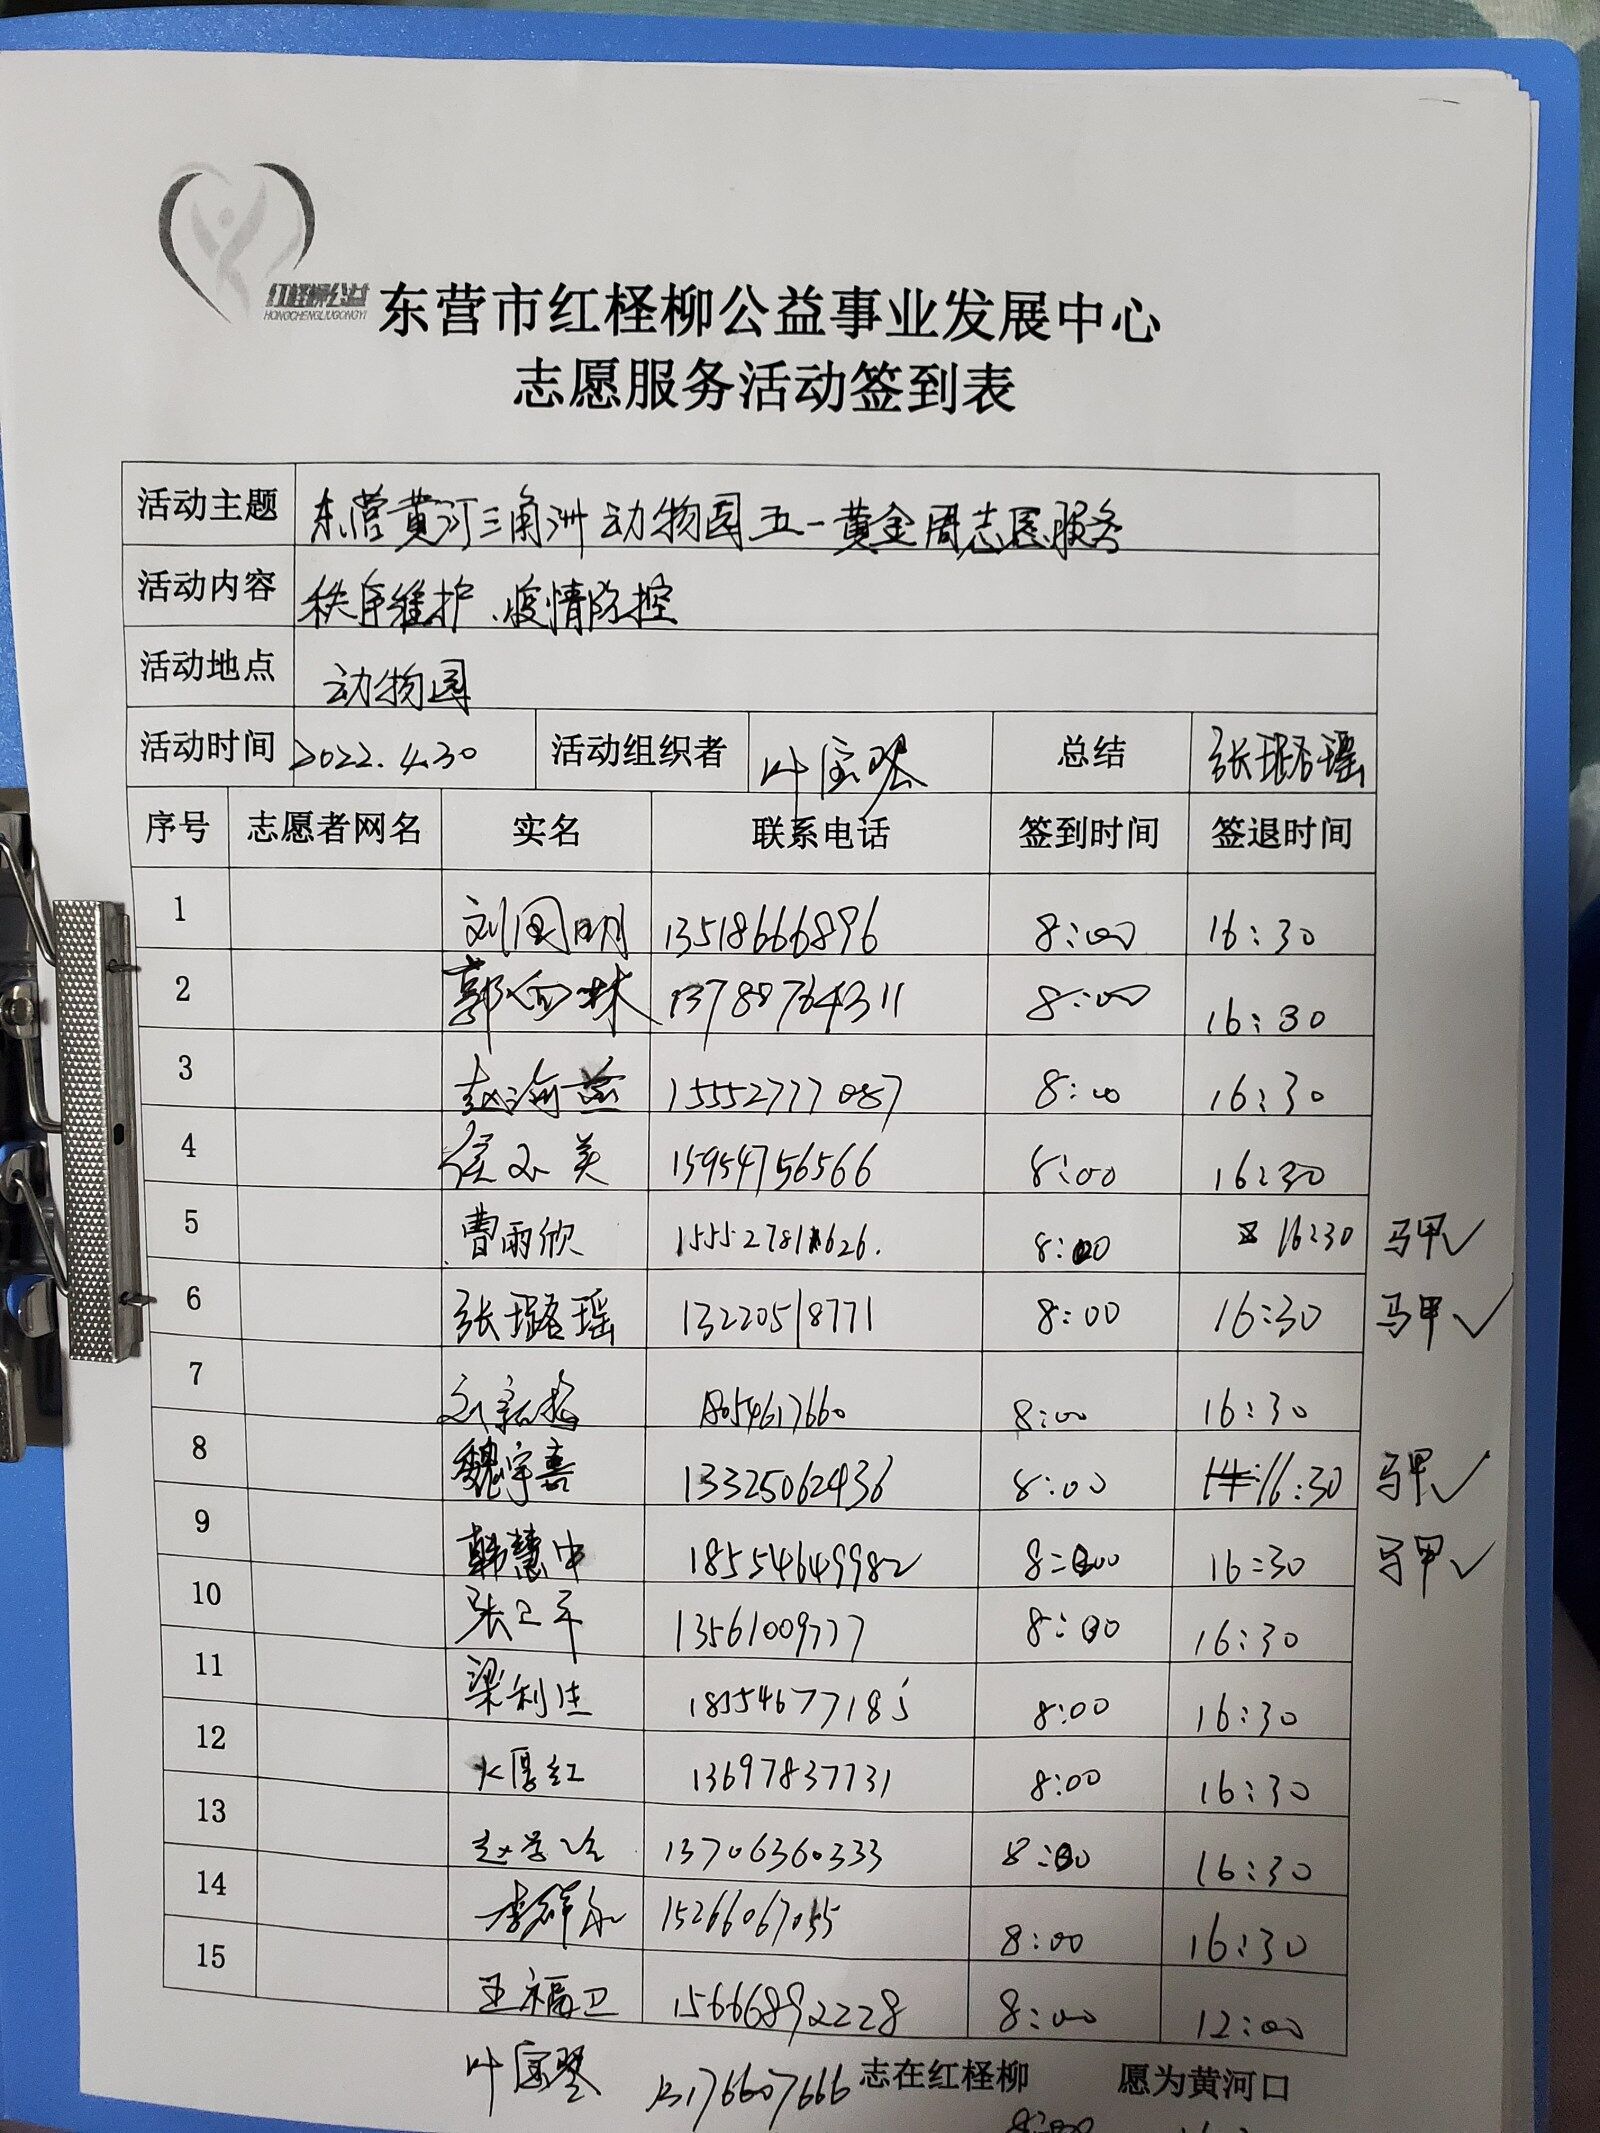 红柽柳公益
HONGCHENGLIUGONGYI
东营市红柽柳公益事业发展中心
志愿服务活动签到表
活动主题 东营黄河三角洲动物园五一黄金周志愿服务
活动内容 秩序维护、疫情防控
活动地点 动物园
活动时间 2022.4.30 活动组织者 叶宝琴 总结 张璐瑶
序号 志愿者网名 实名 联系电话 签到时间 签退时间
1 刘国明 13518666896 8:00 16:30
2 郭向林 13788764311 8:00 16:30
3 赵海燕 15552777087 8:00 16:30
4 侯玉英 15954756566 8:00 16:30
5 曹雨欣 15552781626. 8:00 16:30 马甲✓
6 张璐瑶 13220518771 8:00 16:30 马甲✓
7 18054617660 8:00 16:30
8 魏宇喜 13325062436 8:00 16:30 马甲✓
9 韩慧中 18554649982 8:00 16:30 马甲✓
10 张卫平 13561009777 8:00 16:30
11 梁利生 18554677185 8:00 16:30
12 13697837731 8:00 16:30
13 13706360333 8:00 16:30
14 15266067055 8:00 16:30
15 王福卫 15666892228 8:00 12:00
叶宝琴 13176607666 志在红柽柳 愿为黄河口